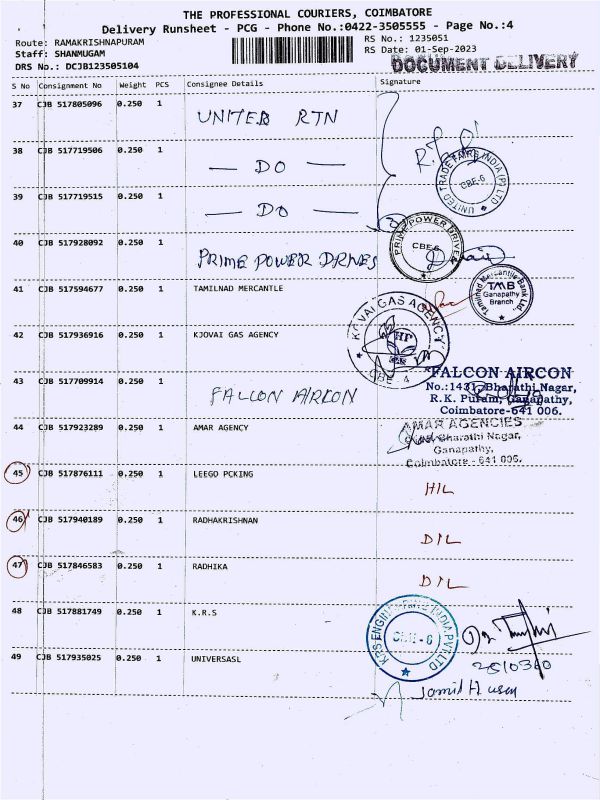 THE PROFESSIONAL COURIERS, COIMBATORE
Delivery Runsheet - PCG - Phone No.:0422-3505555 - Page No.:4
Route: RAMAKRISHNAPURAM
Staff: SHANMUGAM
DRS No.: DCJB123505104
RS No.: 1235051
RS Date: 01-Sep-2023
DOCUMENT DELIVERY
S No Consignment No Weight PCS Consignee Details Signature
37 CJB 517805096 0.250 1 UNITEB RTN
38 CJB 517719506 0.250 1 — DO —
UNITED TRADE FAIRS INDIA (P) LTD
CBE-6
39 CJB 517719515 0.250 1 — DO —
(3)
40 CJB 517928092 0.250 1 PRIME POWER DRIVES
PRIME POWER DRIVES
CBE-6
41 CJB 517594677 0.250 1 TAMILNAD MERCANTILE
Tamilnad Mercantile Bank Ltd.,
TMB
Ganapathy
Branch
42 CJB 517936916 0.250 1 KJOVAI GAS AGENCY
KOVAI GAS AGENCY
HP
CBE-4
43 CJB 517709914 0.250 1 FALCON AIRCON
FALCON AIRCON
No.:1431, Bharathi Nagar,
R.K. Puram, Ganapathy,
Coimbatore-641 006.
44 CJB 517923289 0.250 1 AMAR AGENCY
AMAR AGENCIES
Bharathi Nagar,
Ganapathy,
Coimbatore - 641 006.
45 CJB 517876111 0.250 1 LEEGO PCKING
HIL
46 CJB 517940189 0.250 1 RADHAKRISHNAN
DIL
47 CJB 517846583 0.250 1 RADHIKA
DIL
48 CJB 517881749 0.250 1 K.R.S
KRS ENGINEERING INDIA PVT LTD
CBE-6
49 CJB 517935025 0.250 1 UNIVERSASL